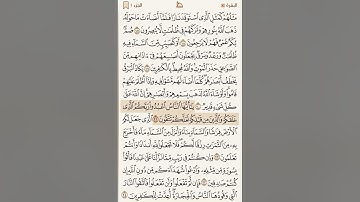 البقرة
الجزء ١
مَثَلُهُمْ كَمَثَلِ ٱلَّذِى ٱسْتَوْقَدَ نَارًا فَلَمَّآ أَضَآءَتْ مَا حَوْلَهُۥ
ذَهَبَ ٱللَّهُ بِنُورِهِمْ وَتَرَكَهُمْ فِى ظُلُمَٰتٍ لَّا يُبْصِرُونَ ١٧ صُمٌّۢ
بُكْمٌ عُمْىٌ فَهُمْ لَا يَرْجِعُونَ ١٨ أَوْ كَصَيِّبٍ مِّنَ ٱلسَّمَآءِ فِيهِ
ظُلُمَٰتٌ وَرَعْدٌ وَبَرْقٌ يَجْعَلُونَ أَصَٰبِعَهُمْ فِىٓ ءَاذَانِهِم مِّنَ
ٱلصَّوَٰعِقِ حَذَرَ ٱلْمَوْتِ وَٱللَّهُ مُحِيطٌۢ بِٱلْكَٰفِرِينَ ١٩ يَكَادُ ٱلْبَرْقُ
يَخْطَفُ أَبْصَٰرَهُمْ كُلَّمَآ أَضَآءَ لَهُم مَّشَوْا۟ فِيهِ وَإِذَآ أَظْلَمَ عَلَيْهِمْ قَامُوا۟
وَلَوْ شَآءَ ٱللَّهُ لَذَهَبَ بِسَمْعِهِمْ وَأَبْصَٰرِهِمْ إِنَّ ٱللَّهَ عَلَىٰ
كُلِّ شَىْءٍ قَدِيرٌ ٢٠ يَٰٓأَيُّهَا ٱلنَّاسُ ٱعْبُدُوا۟ رَبَّكُمُ ٱلَّذِى
خَلَقَكُمْ وَٱلَّذِينَ مِن قَبْلِكُمْ لَعَلَّكُمْ تَتَّقُونَ ٢١ ٱلَّذِى جَعَلَ لَكُمُ
ٱلْأَرْضَ فِرَٰشًا وَٱلسَّمَآءَ بِنَآءً وَأَنزَلَ مِنَ ٱلسَّمَآءِ مَآءً فَأَخْرَجَ
بِهِۦ مِنَ ٱلثَّمَرَٰتِ رِزْقًا لَّكُمْ فَلَا تَجْعَلُوا۟ لِلَّهِ أَندَادًا وَأَنتُمْ
تَعْلَمُونَ ٢٢ وَإِن كُنتُمْ فِى رَيْبٍ مِّمَّا نَزَّلْنَا عَلَىٰ عَبْدِنَا فَأْتُوا۟
بِسُورَةٍ مِّن مِّثْلِهِۦ وَٱدْعُوا۟ شُهَدَآءَكُم مِّن دُونِ ٱللَّهِ إِن
كُنتُمْ صَٰدِقِينَ ٢٣ فَإِن لَّمْ تَفْعَلُوا۟ وَلَن تَفْعَلُوا۟ فَٱتَّقُوا۟ ٱلنَّارَ
ٱلَّتِى وَقُودُهَا ٱلنَّاسُ وَٱلْحِجَارَةُ أُعِدَّتْ لِلْكَٰفِرِينَ ٢٤